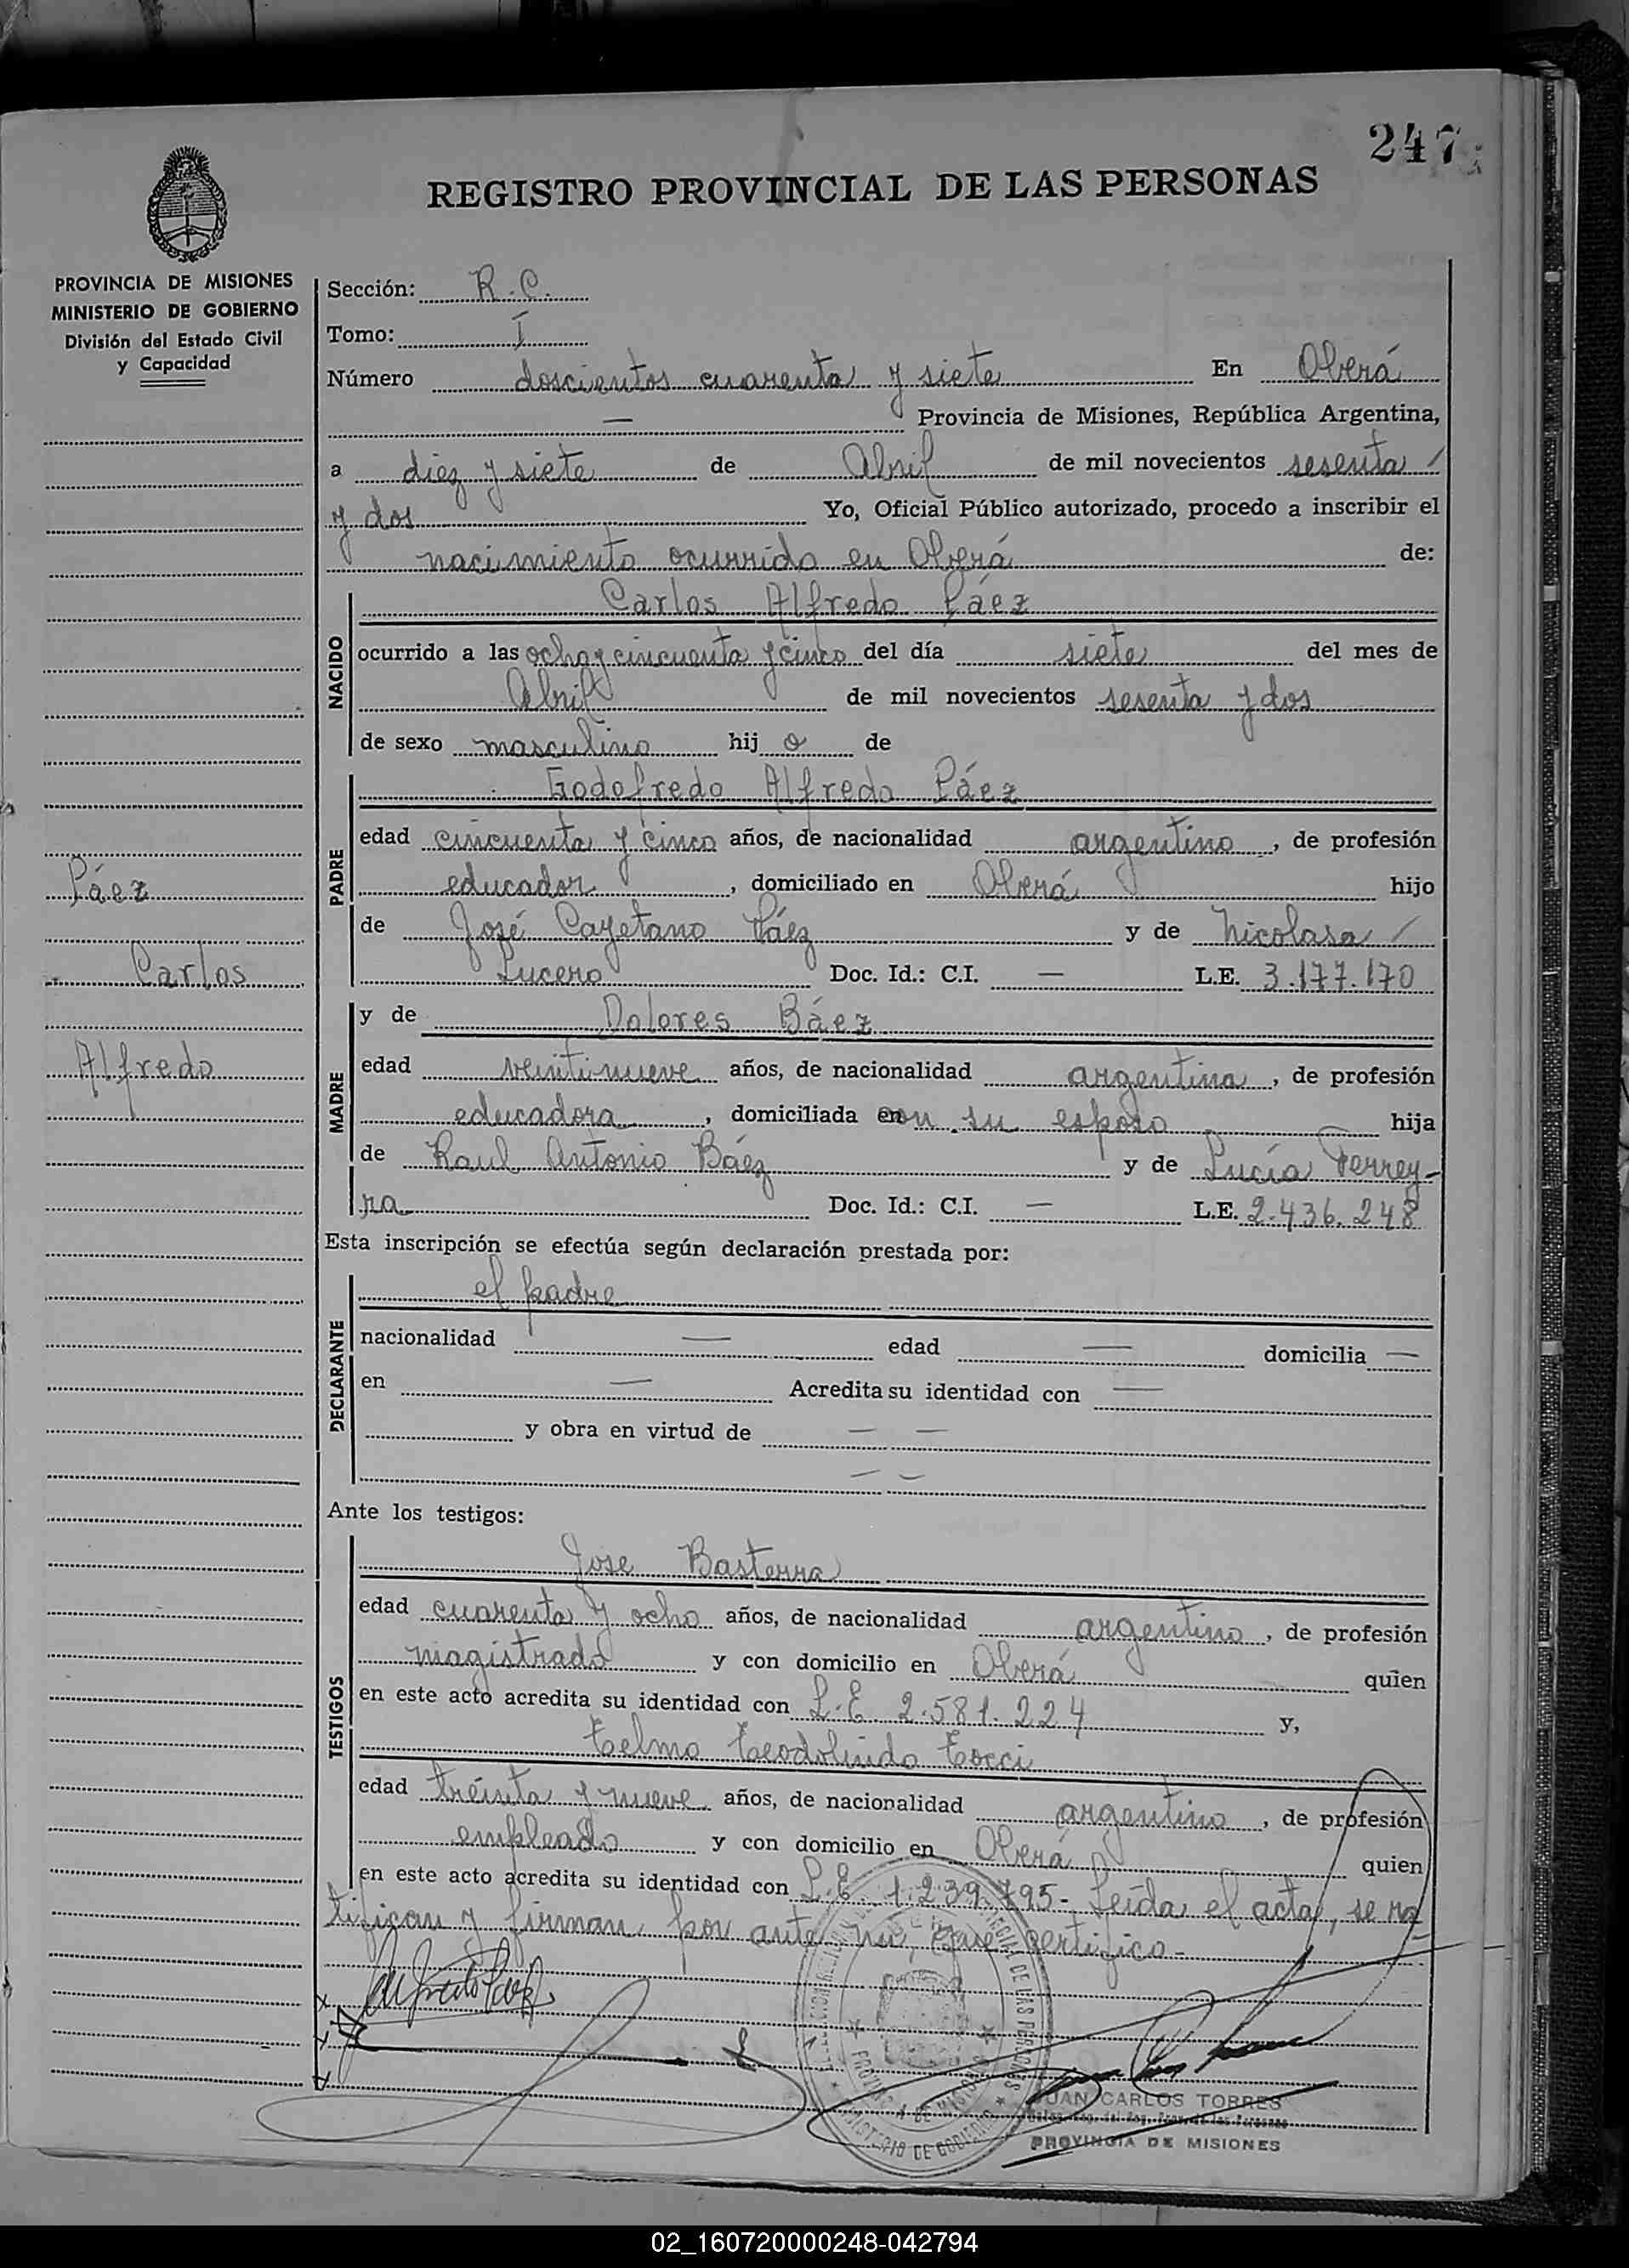 247
REGISTRO PROVINCIAL DE LAS PERSONAS
PROVINCIA DE MISIONES
MINISTERIO DE GOBIERNO
División del Estado Civil
y Capacidad
Páez
Carlos
Alfredo
Sección: R.C.
Tomo: I
Número doscientos cuarenta y siete En Oberá
— Provincia de Misiones, República Argentina,
a diez y siete de Abril de mil novecientos sesenta /
y dos Yo, Oficial Público autorizado, procedo a inscribir el
nacimiento ocurrido en Oberá de:
NACIDO
Carlos Alfredo Páez
ocurrido a las ocho y cincuenta y cinco del día siete del mes de
Abril de mil novecientos sesenta y dos
de sexo masculino hij o de
PADRE
Godofredo Alfredo Páez
edad cincuenta y cinco años, de nacionalidad argentino, de profesión
educador, domiciliado en Oberá hijo
de José Cayetano Páez y de Nicolasa /
Lucero Doc. Id.: C.I. — L.E. 3.177.170
MADRE
y de Dolores Báez
edad veintinueve años, de nacionalidad argentina, de profesión
educadora, domiciliada en con su esposo hija
de Raul Antonio Báez y de Lucía Ferrey-
ra Doc. Id.: C.I. — L.E. 2.436.248
Esta inscripción se efectúa según declaración prestada por:
DECLARANTE
el padre
nacionalidad — edad — domicilia —
en — Acredita su identidad con —
y obra en virtud de — —
— —
Ante los testigos:
TESTIGOS
Jose Basterra
edad cuarenta y ocho años, de nacionalidad argentino, de profesión
magistrado y con domicilio en Oberá quien
en este acto acredita su identidad con L.E 2.581.224 y,
Telmo Teodolindo Tocci
edad treinta y nueve años, de nacionalidad argentino, de profesión
empleado y con domicilio en Oberá quien
en este acto acredita su identidad con L.E. 1.239.795- Leída el acta, se ra-
tifican y firman por ante mí, que certifico-
JUAN CARLOS TORRES
PROVINCIA DE MISIONES
02_160720000248-042794